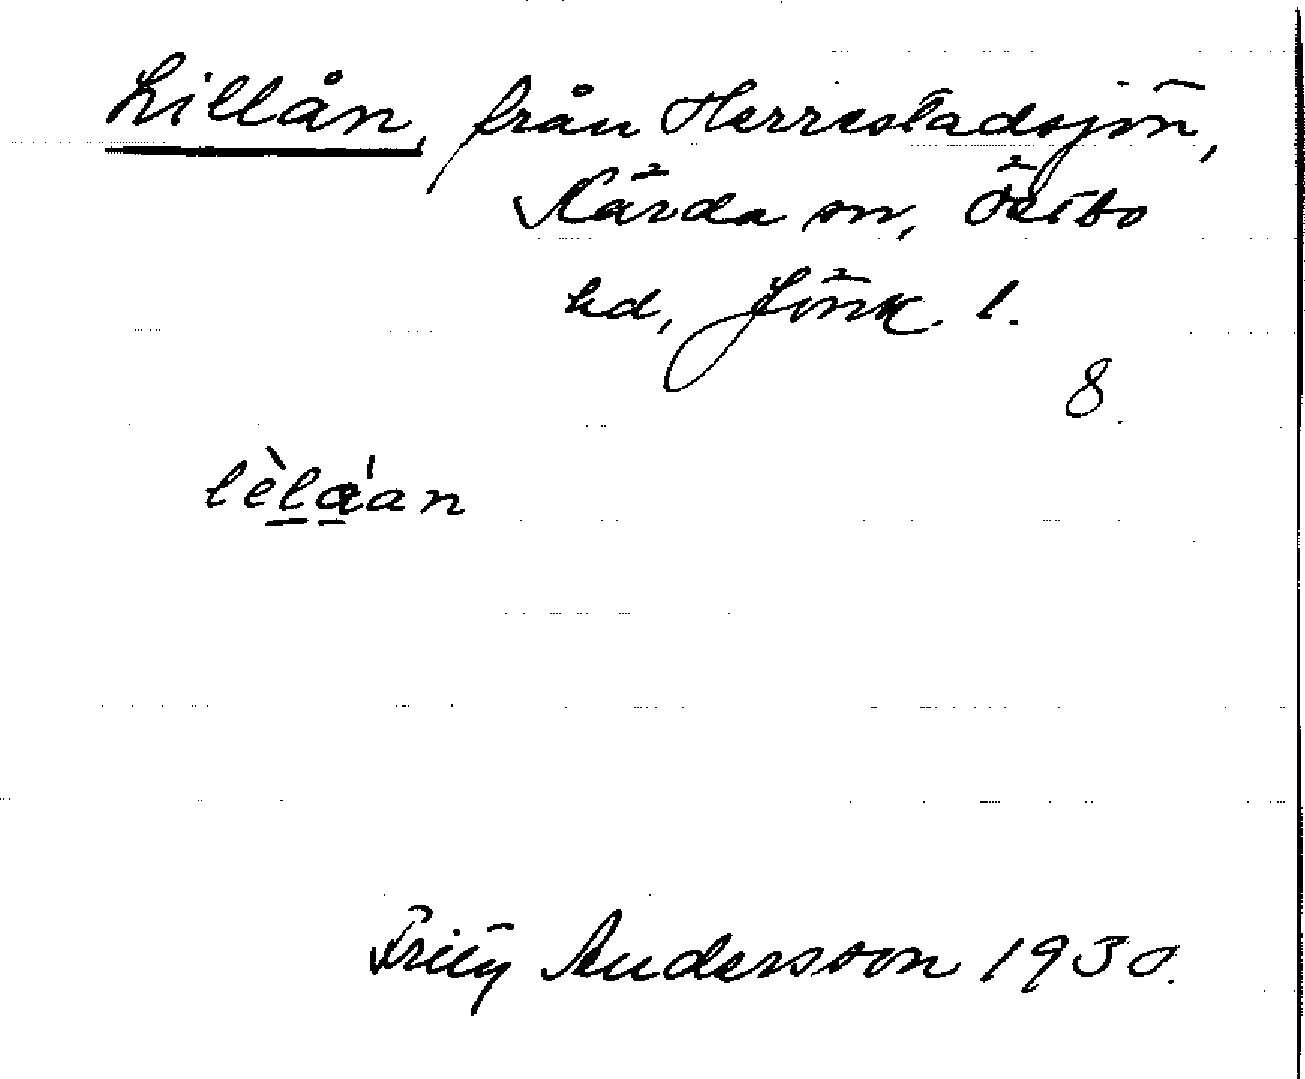 Lillån, från Herrestadsjön,
Kärda sn, Östbo
hd, Jönk. l.
8.
lèla̱'an
Fritz Andersson 1930.